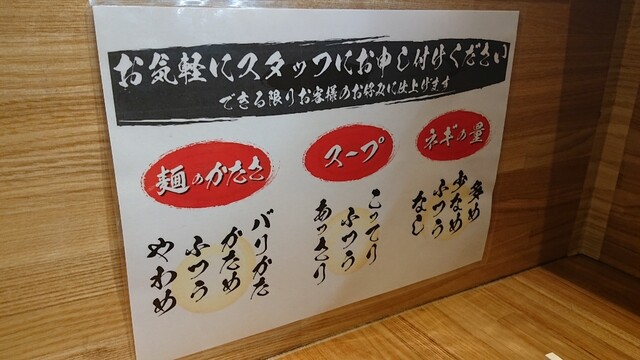 お気軽にスタッフにお申し付けください
できる限りお客様のお好みに仕上げます
麺のかたさ
バリかた
かため
ふつう
やわめ
スープ
こってり
ふつう
あっさり
ネギの量
多め
ふつう
少なめ
なし